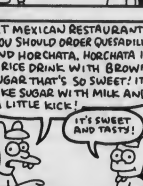 T MEXICAN RESTAURANT
OU SHOULD ORDER QUESADILL
ND HORCHATA. HORCHATA I
RICE DRINK WITH BROWN
UGAR THAT'S SO SWEET! IT
KE SUGAR WITH MILK AND
LITTLE KICK!
IT'S SWEET
AND TASTY!